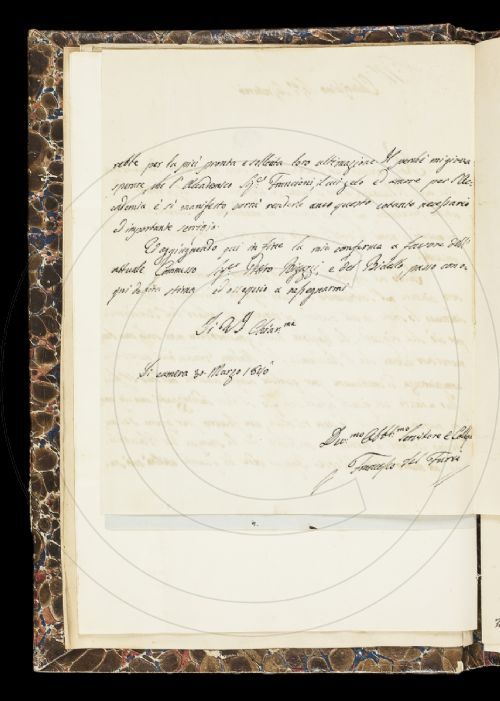 rebbe per la più pronta e sollecita loro ultimazione. Il perchè mi giova
sperare, che l'Accademico Sigr. Francioni il cui zelo ed amore per l'Ac-
cademia è sì manifesto vorrà renderle anco questo cotanto necessario
ed importante servizio.
Aggiungendo poi in fine la mia conferma a favore dell'
attuale Commesso Sigr. Pietro Bigazzi, e del Bidello, passo con o-
gni dovuta stima ed ossequio a rassegnarmi
Di V.S. Chiar.ma
Di camera 30 Marzo 1840
Dev.mo Obbl.mo Servitore e Collega
Francesco del Furia